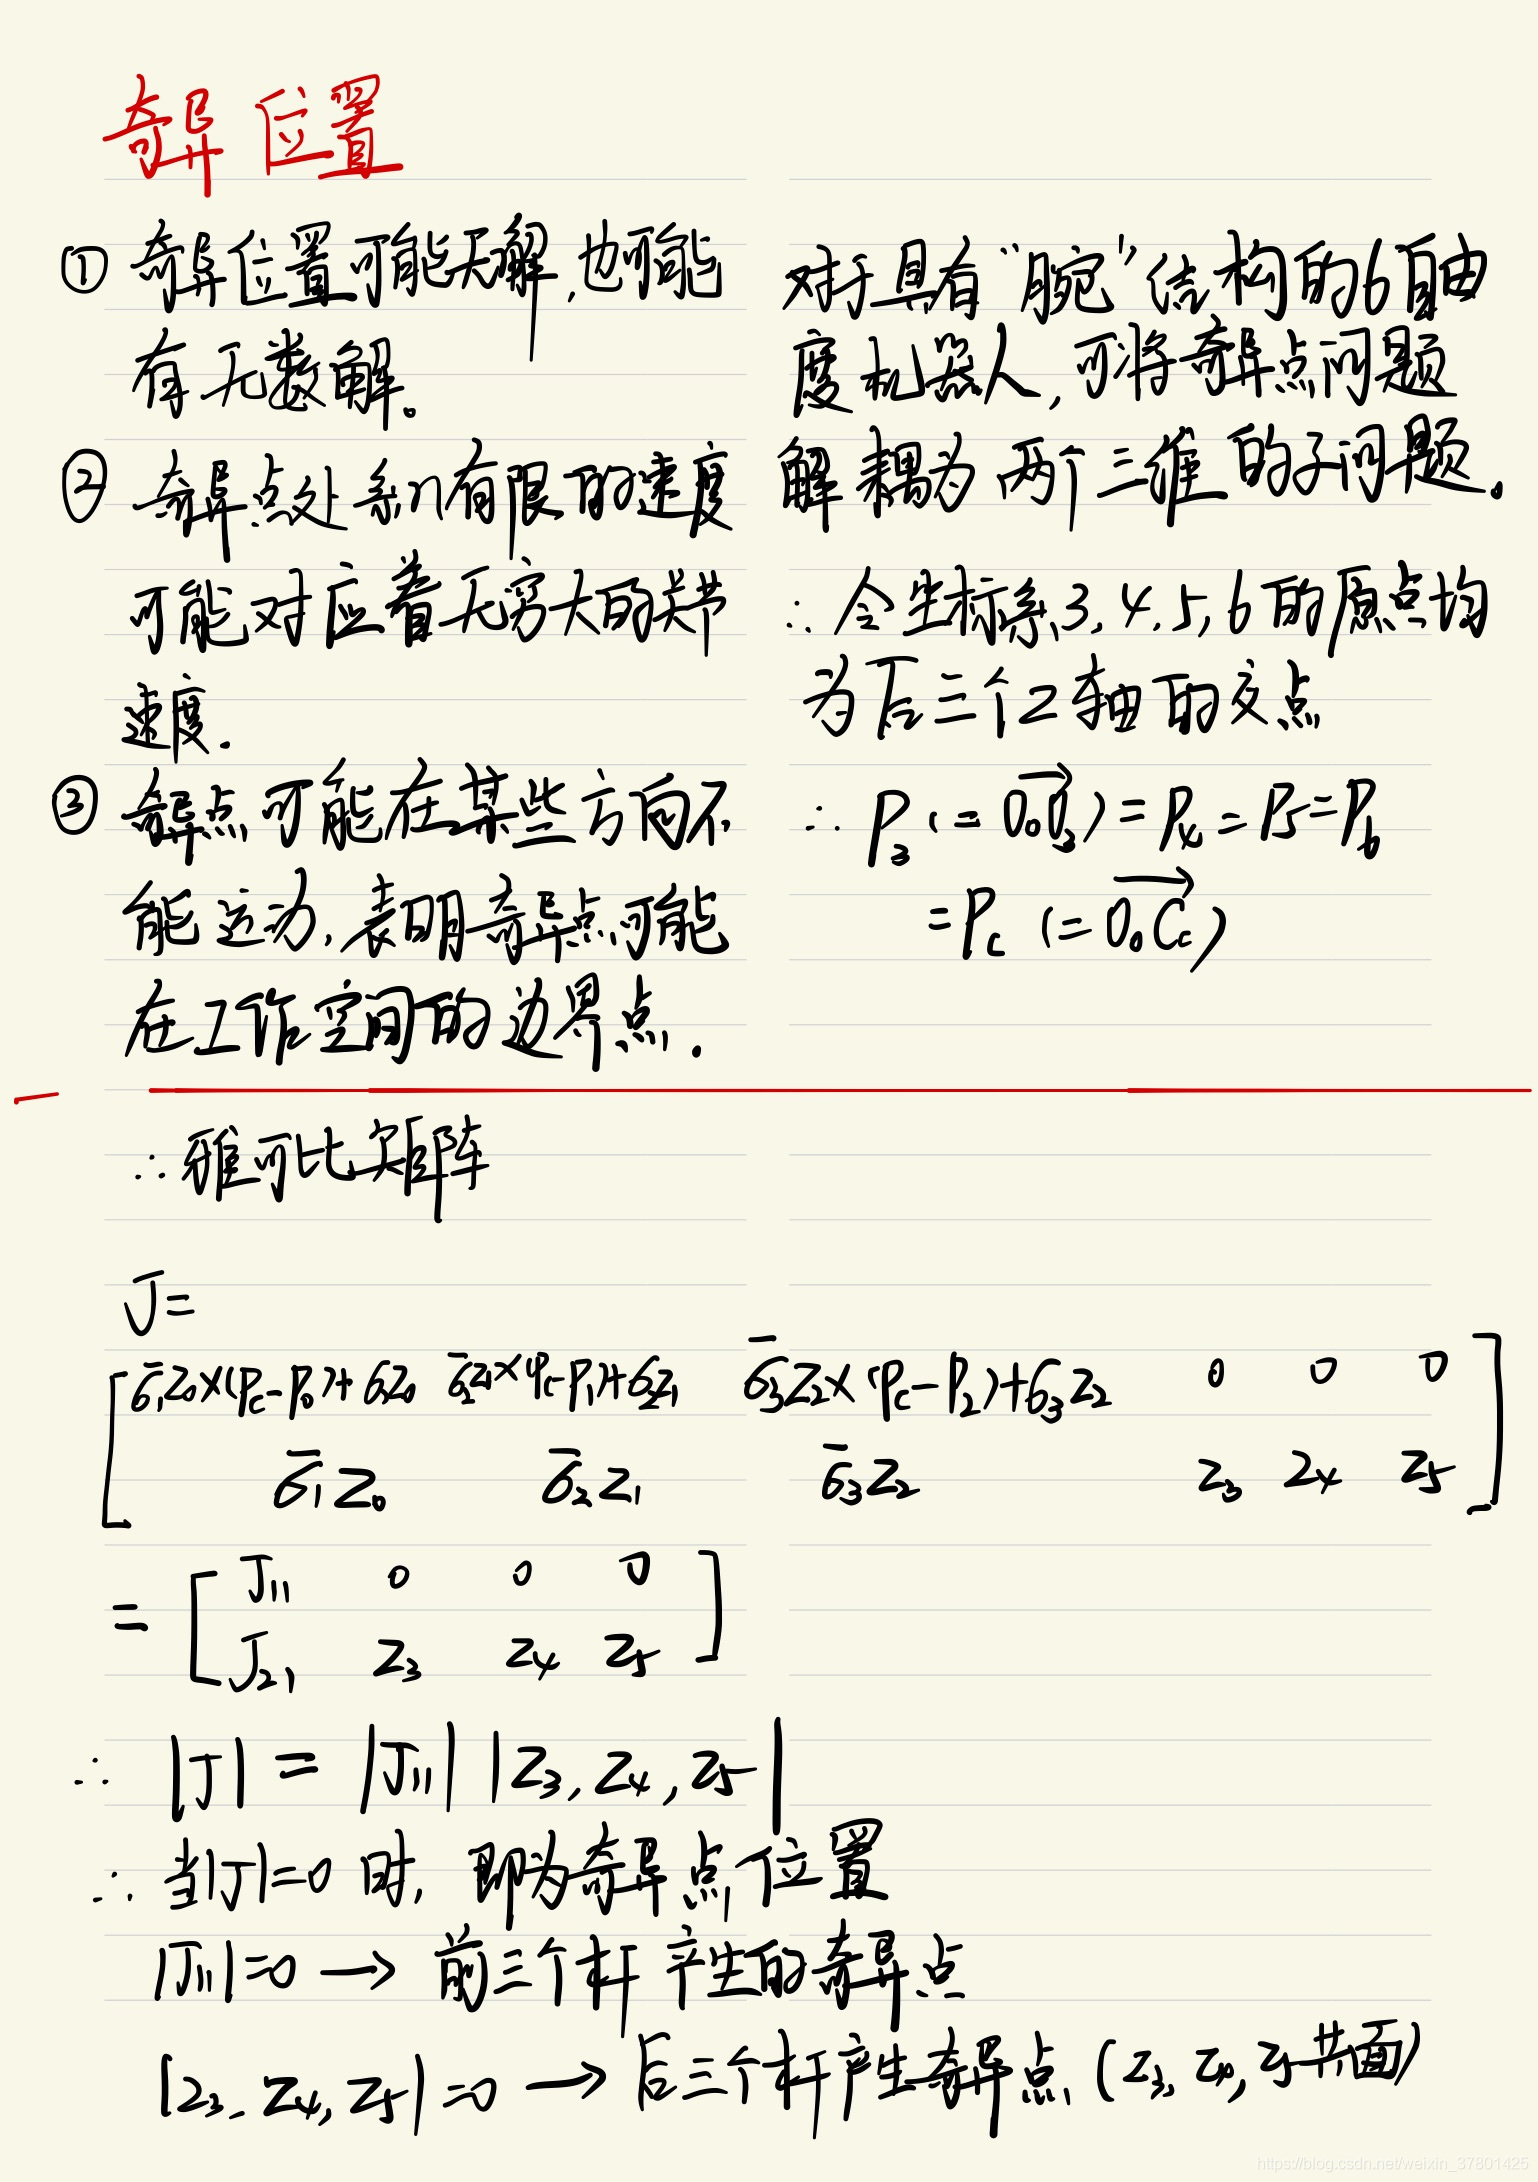 奇异位置
① 奇异位置可能无解,也可能
有无数解。
② 奇异点处系n有限的速度
可能对应着无穷大的关节
速度.
③ 奇异点可能在某些方向不
能运动,表明奇异点可能
在工作空间的边界点.
对于具有“腕”结构的6自由
度机器人,可将奇异点问题
解耦为两个三维的子问题.
∴ 令坐标系3,4,5,6的原点均
为后三个Z轴的交点
∴ P₃(=\overrightarrow{O₀O₃})=P₄=P₅=P₆
=P_c (=\overrightarrow{O₀C_c})
∴雅可比矩阵
J=
[ σ̄₁Z₀×(P_c-P₀)+σ₁Z₀ σ̄₂Z₁×(P_c-P₁)+σ₂Z₁ σ̄₃Z₂×(P_c-P₂)+σ₃Z₂ 0 0 0
σ̄₁Z₀ σ̄₂Z₁ σ̄₃Z₂ Z₃ Z₄ Z₅ ]
= [ J₁₁ 0 0 0
J₂₁ Z₃ Z₄ Z₅ ]
∴ |J| = |J₁₁| |Z₃,Z₄,Z₅|
∴ 当|J|=0时,即为奇异点位置
|J₁₁|=0 → 前三个杆产生的奇异点
|Z₃,Z₄,Z₅|=0 → 后三个杆产生奇异点(Z₃,Z₄,Z₅共面)
https://blog.csdn.net/weixin_37801425